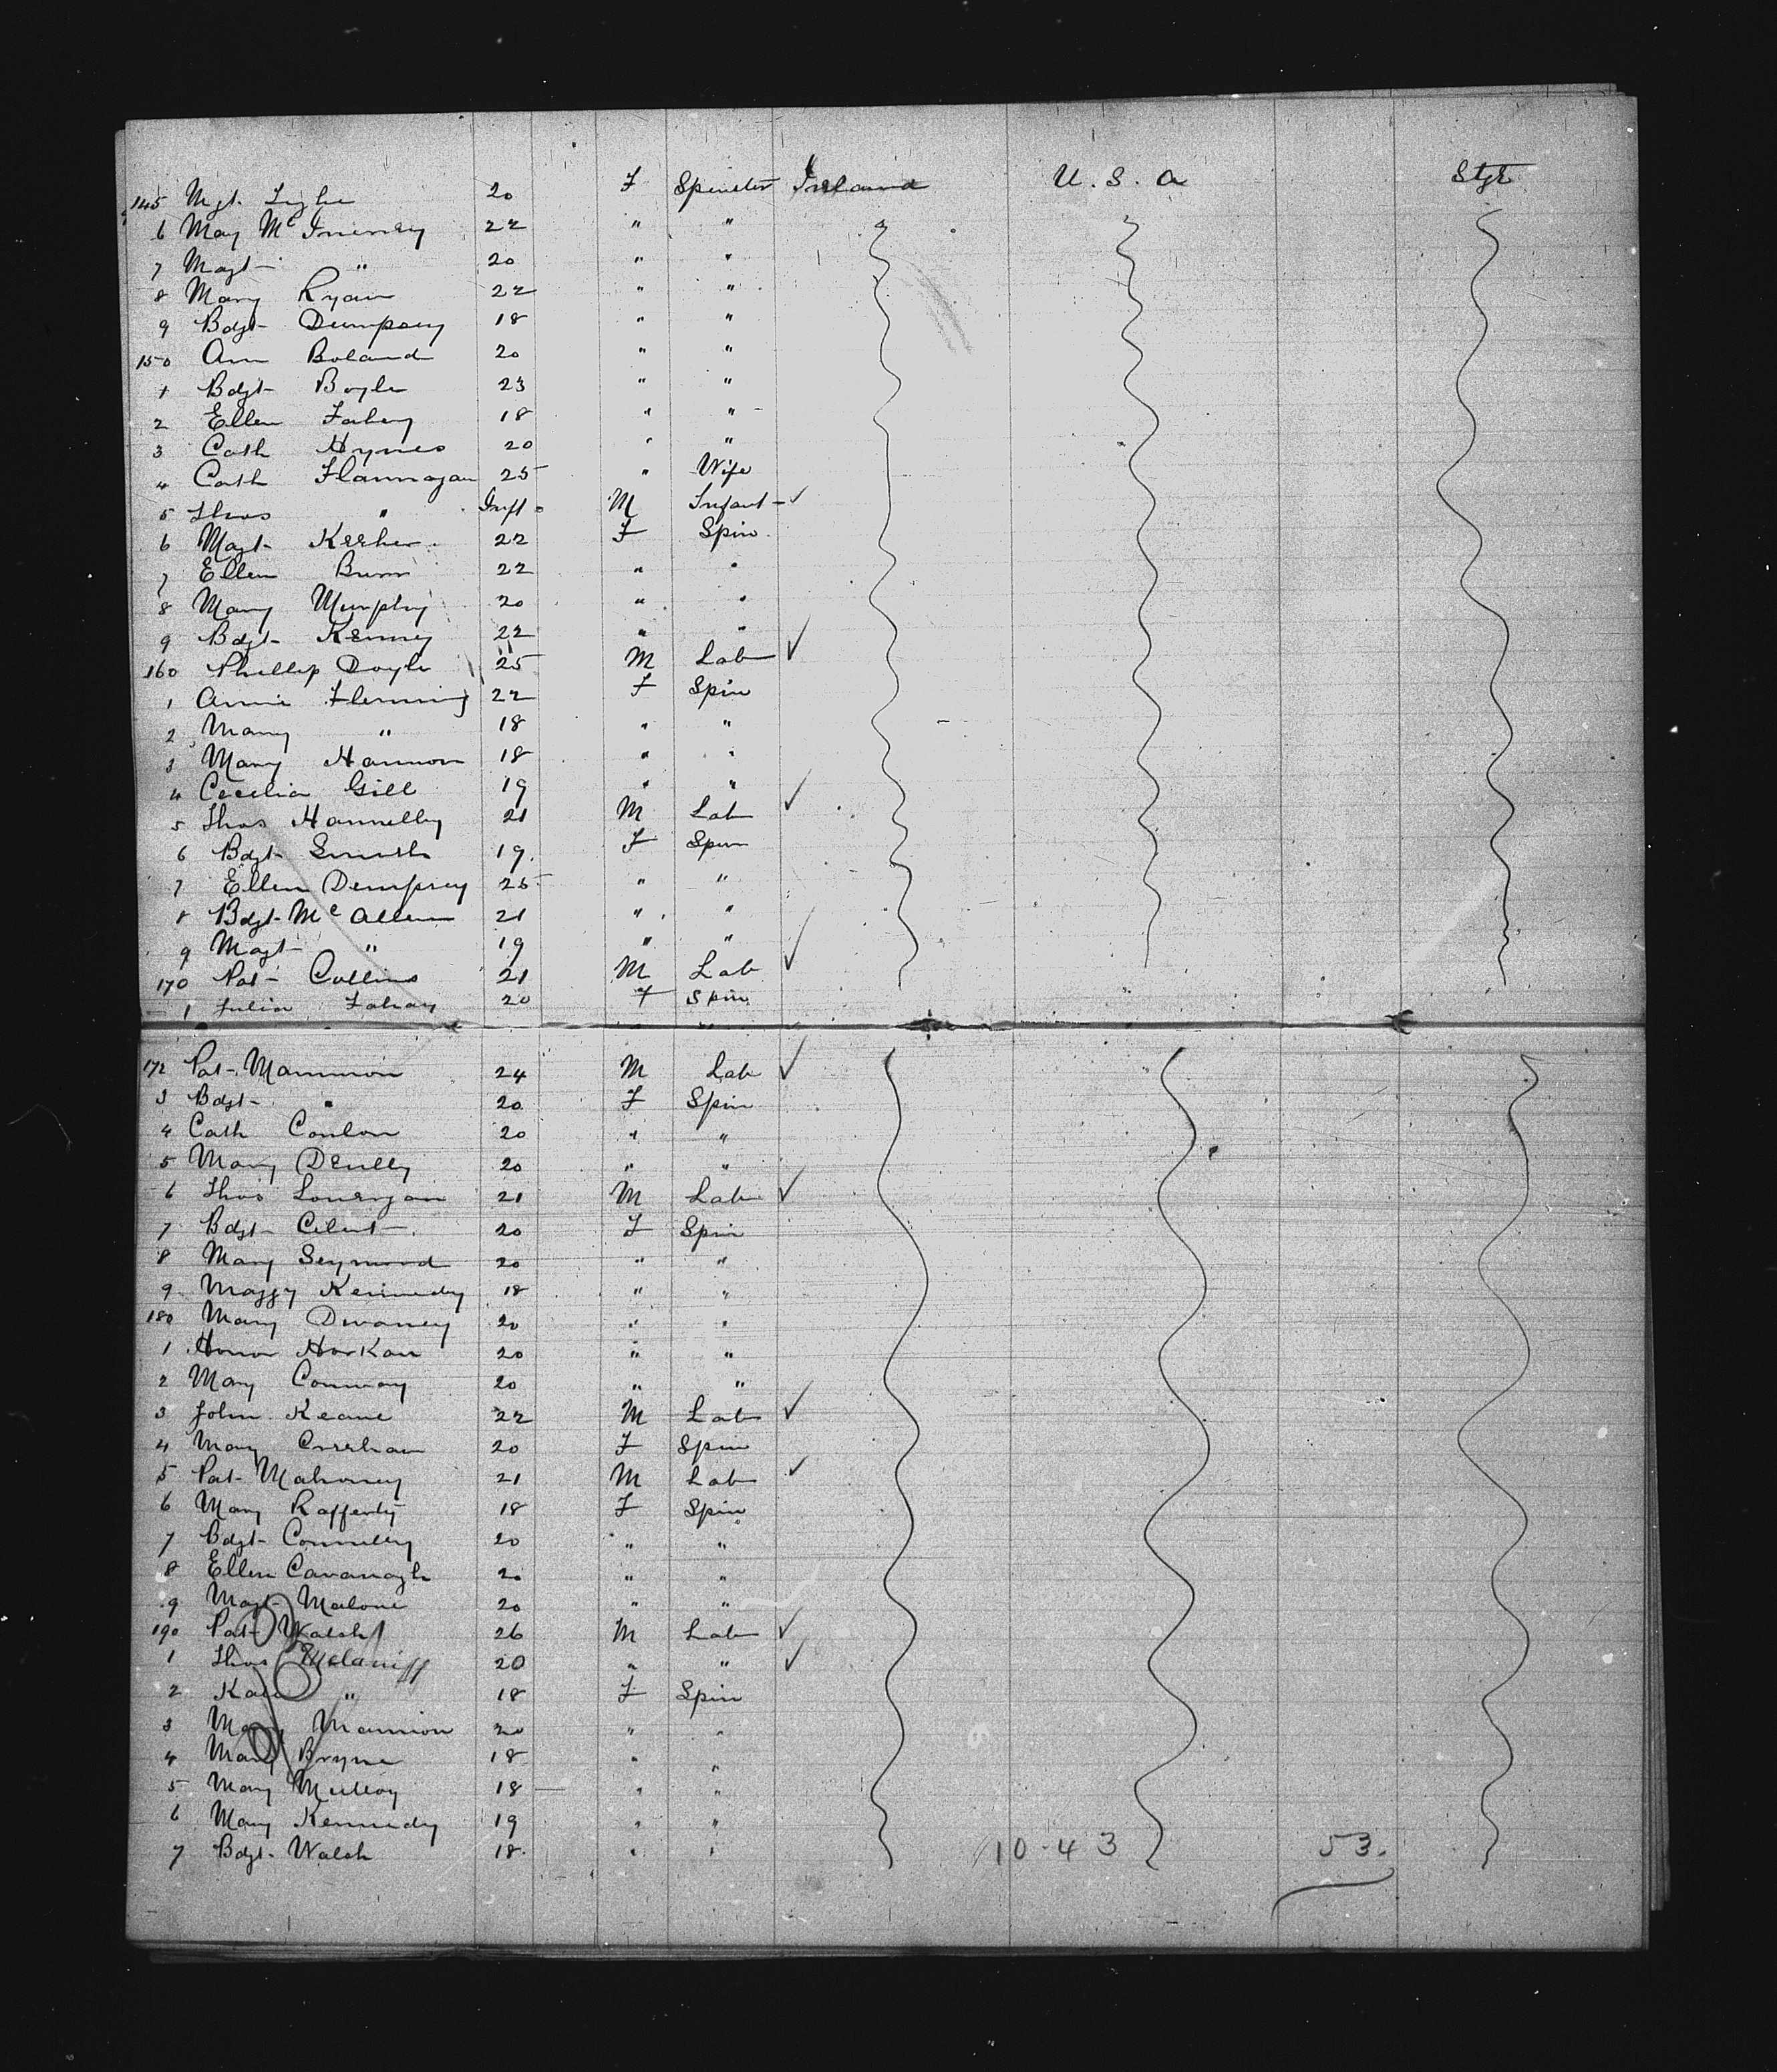 145 Mgt. Tighe 20 F Spinster Ireland U.S.a Stge
6 May McInerney 22 " "
7 Magt- " 20 " "
8 Mary Ryan 22 " "
9 Bdgt- Dempsey 18 " "
150 Ann Boland 20 " "
1 Bdgt- Boyle 23 " "
2 Ellen Fahey 18 " "
3 Cath Hynes 20 " "
4 Cath Flannagan 25 " Wife
5 Thos " Inft M Infant ✓
6 Magt- Keeher 22 F Spin
7 Ellen Burn 22 " "
8 Mary Murphy 20 " "
9 Bdgt- Kenney 22 " "
160 Phillip Doyle 25 M Lab ✓
1 Annie Fleming 22 F Spin
2 Mary " 18 " "
3 Mary Hannon 18 " "
4 Cecelia Gill 19 " "
5 Thos Hannelly 21 M Lab ✓
6 Bdgt- Smith 19. F Spin
7 Ellen Dempsey 25 " "
8 Bdgt- Mc Allen 21 " "
9 Magt- " 19 " "
170 Pat- Collins 21 M Lab ✓
1 Julia Fahay 20 F Spin
172 Pat- Mannion 24 M Lab ✓
3 Bdgt- " 20 F Spin
4 Cath Conlon 20 " "
5 Mary 20 " "
6 Thos Lonergan 21 M Lab ✓
7 Bdgt- 20 F Spin
8 Mary Seymord 20 " "
9 Maggy Kennedy 18 " "
180 Mary Devaney 20 " "
1 Honor Horkan 20 " "
2 Mary Conway 20 " "
3 John Keane 22 M Lab ✓
4 Mary Creehan 20 F Spin
5 Pat- Mahoney 21 M Lab ✓
6 Mary Rafferty 18 F Spin
7 Bdgt- Connelly 20 " "
8 Ellen Cavanagh 20 " "
9 Magt- Malone 20 " "
190 Pat- Walsh 26 M Lab ✓
1 Thos Melaniff 20 " " ✓
2 Kate " 18 F Spin
3 Mary Mannion 20 " "
4 Mary Bryne 18 " "
5 Mary Mulloy 18 " "
6 Mary Kennedy 19 " "
7 Bdgt- Walsh 18. " " 10-43 53.